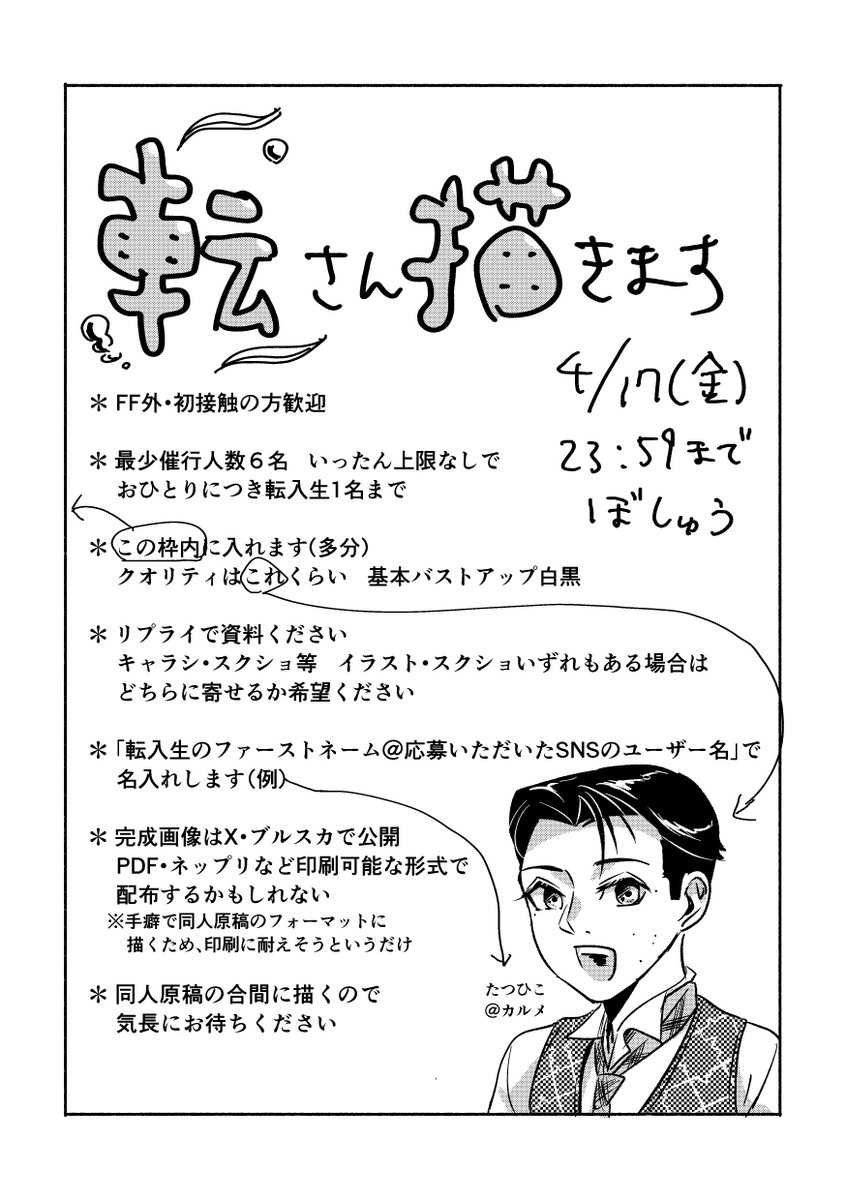 転さん描きます
4/17(金)
23:59まで
ぼしゅう
＊ FF外・初接触の方歓迎
＊ 最少催行人数６名　いったん上限なしで
おひとりにつき転入生1名まで
＊ この枠内に入れます(多分)
クオリティはこれくらい　基本バストアップ白黒
＊ リプライで資料ください
キャラシ・スクショ等　イラスト・スクショいずれもある場合は
どちらに寄せるか希望ください
＊ 「転入生のファーストネーム＠応募いただいたSNSのユーザー名」で
名入れします(例)
＊ 完成画像はX・ブルスカで公開
PDF・ネップリなど印刷可能な形式で
配布するかもしれない
※手癖で同人原稿のフォーマットに
描くため、印刷に耐えそうというだけ
＊ 同人原稿の合間に描くので
気長にお待ちください
たつひこ
＠カルメ